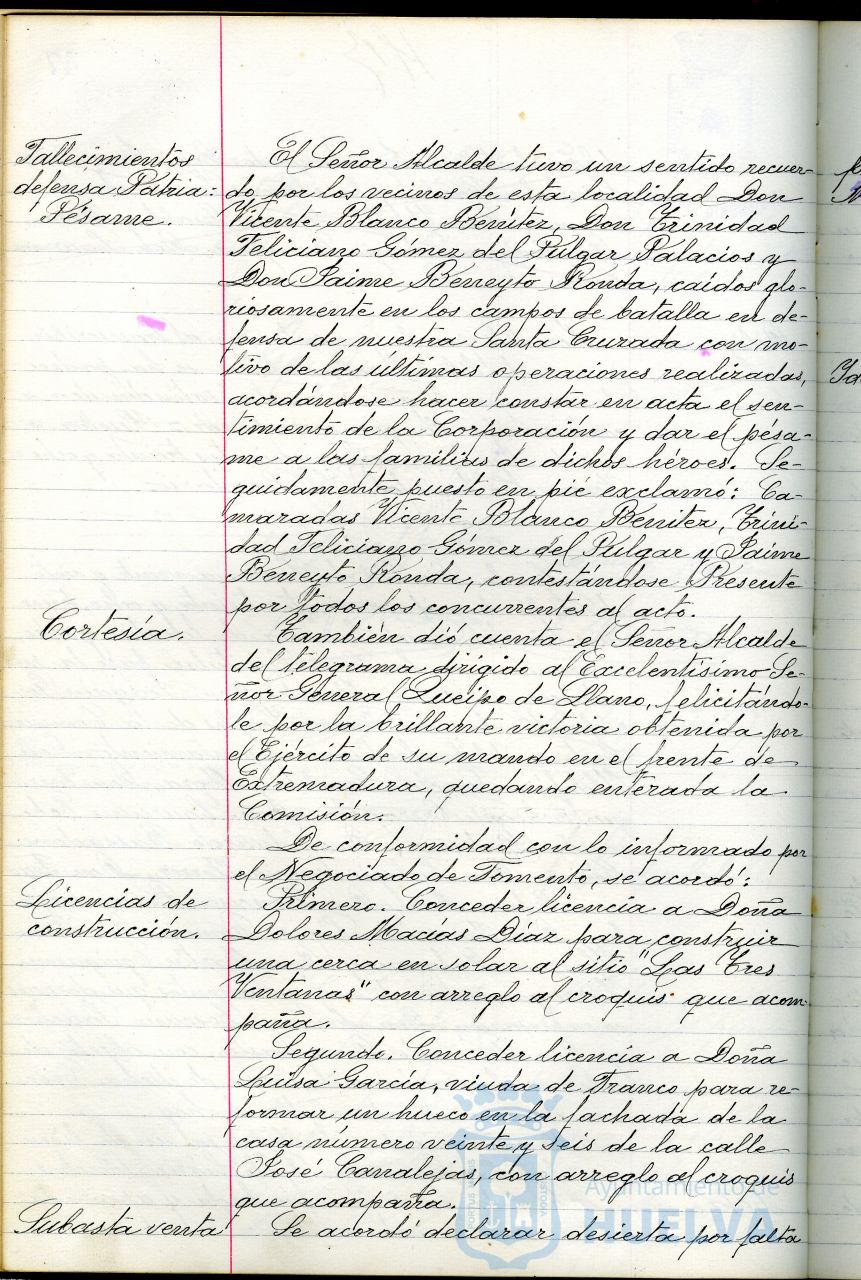 Fallecimientos
defensa Patria:
Pésame.
El Señor Alcalde tuvo un sentido recuer-
do por los vecinos de esta localidad Don
Vicente Blanco Benítez, Don Trinidad
Feliciano Gómez del Pulgar Palacios y
Don Jaime Beneyto Ronda, caídos glo-
riosamente en los campos de batalla en de-
fensa de nuestra Santa Cruzada con mo-
tivo de las últimas operaciones realizadas,
acordándose hacer constar en acta el sen-
timiento de la Corporación y dar el pésa-
me a las familias de dichos héroes. Se-
guidamente puesto en pié exclamó: Ca-
maradas Vicente Blanco Benitez, Trini-
dad Feliciano Gómez del Pulgar y Jaime
Beneyto Ronda, contestándose Presente
por todos los concurrentes al acto.
Cortesía.
También dió cuenta el Señor Alcalde
del telegrama dirigido al Excelentísimo Se-
ñor General Queipo de Llano, felicitándo-
le por la brillante victoria obtenida por
el Ejército de su mando en el frente de
Extremadura, quedando enterada la
Comisión.
De conformidad con lo informado por
el Negociado de Fomento, se acordó:
Licencias de
construcción.
Primero. Conceder licencia a Doña
Dolores Macías Díaz para construir
una cerca en solar al sitio "Las Tres
Ventanas" con arreglo al croquis que acom-
paña.
Segundo. Conceder licencia a Doña
Luisa García, viuda de Franco para re-
formar un hueco en la fachada de la
casa número veinte y seis de la calle
José Canalejas, con arreglo al croquis
que acompaña.
Subasta venta
Se acordó declarar desierta por falta
Ayuntamiento de
HUELVA